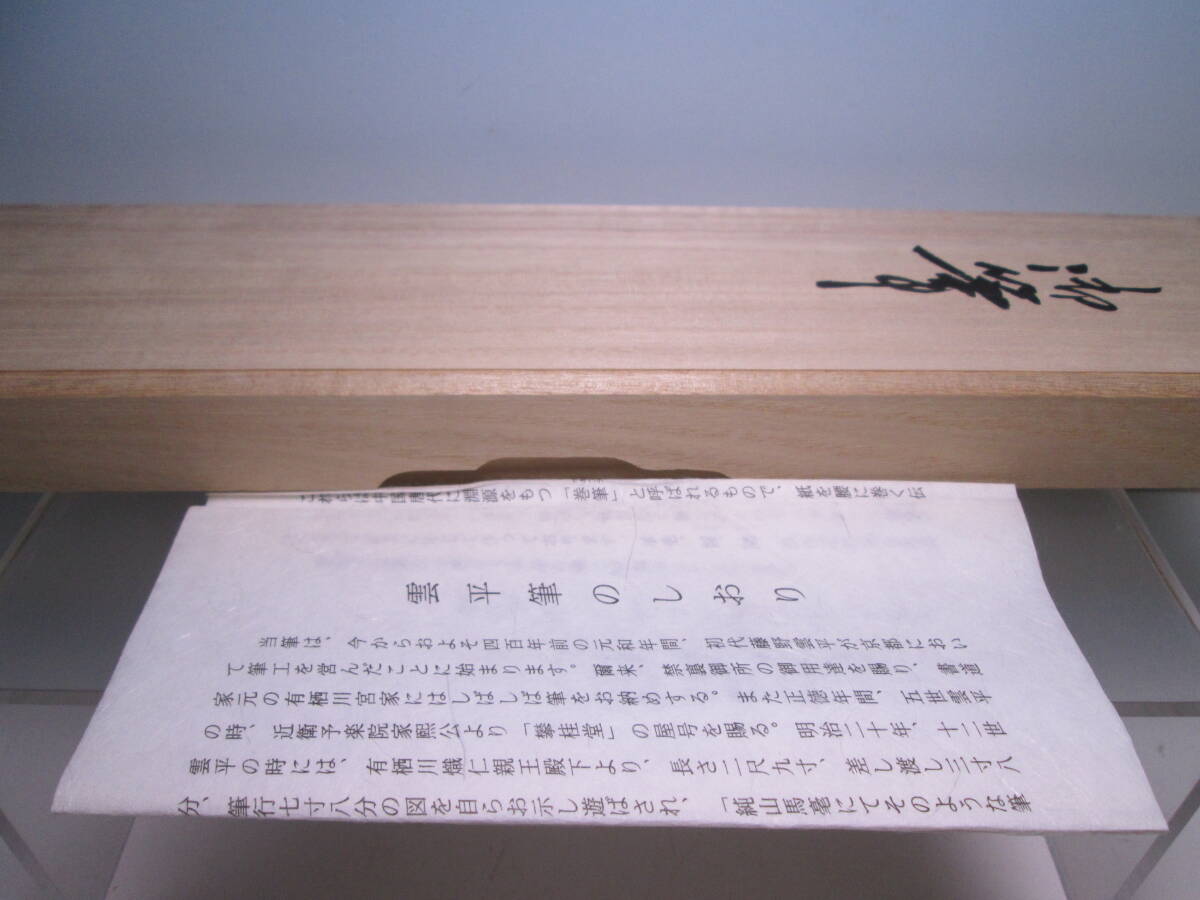 雲平筆のしおり
当筆は、今からおよそ四百年前の元和年間、初代藤野雲平が京都におい
て筆工を営んだことに始まります。爾来、禁裏御所の御用達を賜り、書道
家元の有栖川宮家にはしばしば筆をお納めする。また正徳年間、五世雲平
の時、近衛予楽院家熈公より「攀桂堂」の屋号を賜る。明治二十年、十二世
雲平の時には、有栖川熾仁親王殿下より、長さ二尺九寸、差し渡し三寸八
分、筆行七寸八分の図を自らお示し遊ばされ、「純山馬毫にてそのような筆
これらは中国唐代に淵源をもつ「巻筆」と呼ばれるもので、紙を腰に巻く伝